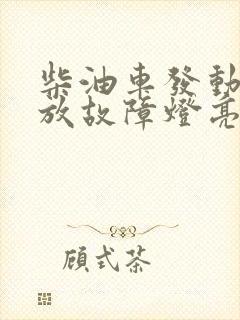 柴油車發動
放故障燈亮
顧式茶